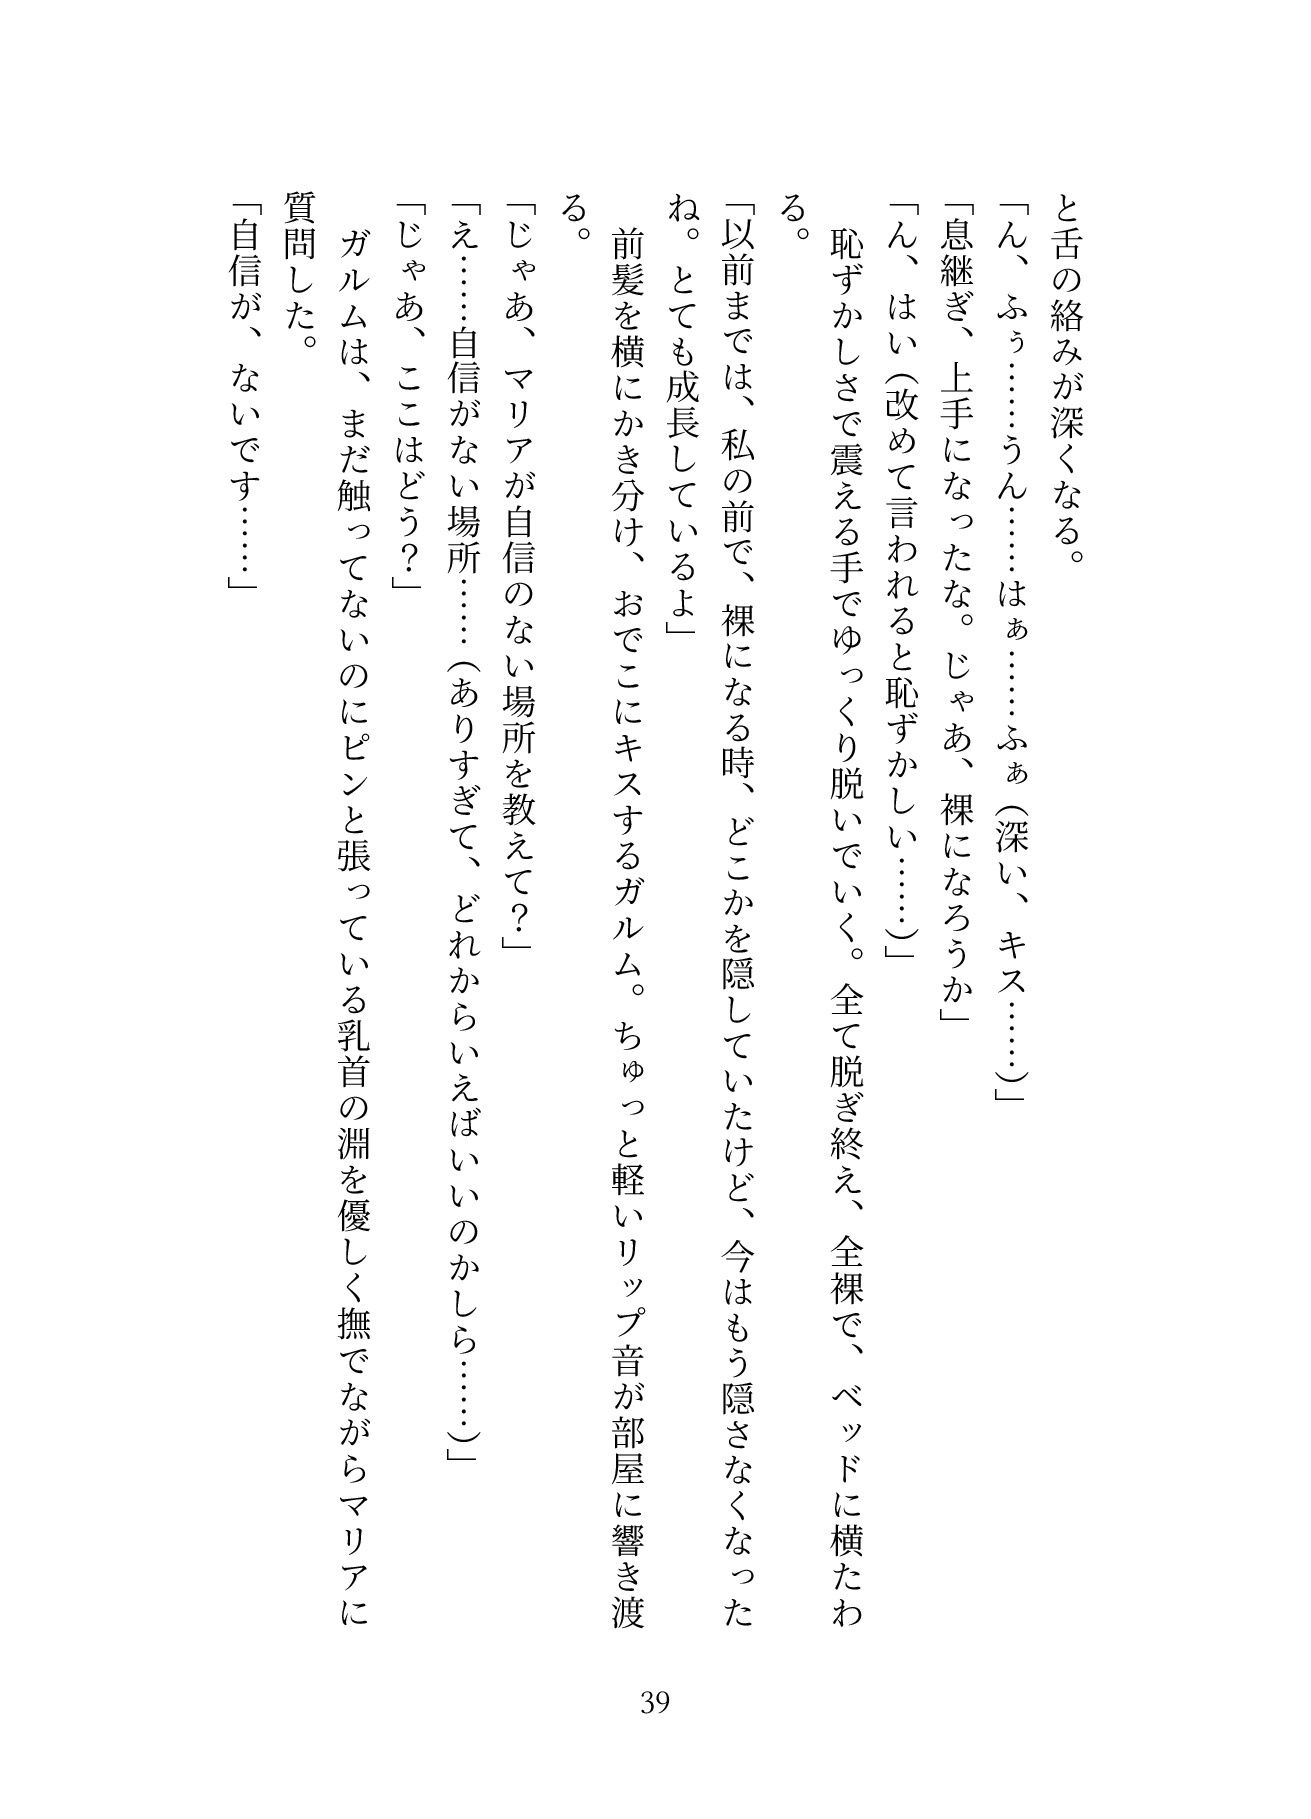 と舌の絡みが深くなる。
「ん、ふぅ……うん……はぁ……ふぁ（深い、キス……）」
「息継ぎ、上手になったな。じゃあ、裸になろうか」
「ん、はい（改めて言われると恥ずかしい……）」
　恥ずかしさで震える手でゆっくり脱いでいく。全て脱ぎ終え、全裸で、ベッドに横たわ
る。
「以前までは、私の前で、裸になる時、どこかを隠していたけど、今はもう隠さなくなった
ね。とても成長しているよ」
　前髪を横にかき分け、おでこにキスするガルム。ちゅっと軽いリップ音が部屋に響き渡
る。
「じゃあ、マリアが自信のない場所を教えて？」
「え……自信がない場所……（ありすぎて、どれからいえばいいのかしら……）」
「じゃあ、ここはどう？」
　ガルムは、まだ触ってないのにピンと張っている乳首の淵を優しく撫でながらマリアに
質問した。
「自信が、ないです……」
39